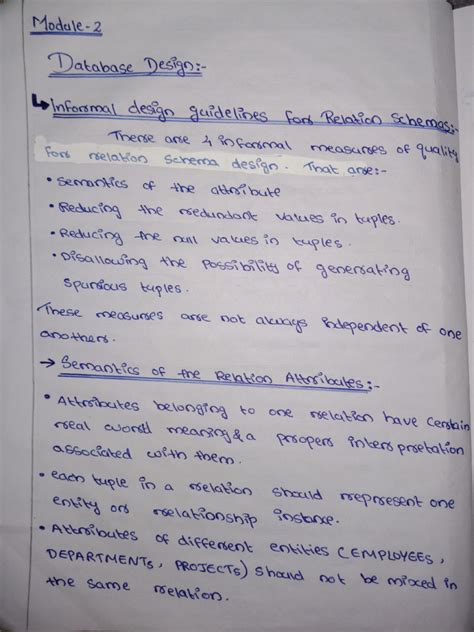 Module-2
Database Design:-
↳ Informal design guidelines for Relation Schemas:-
There are 4 informal measures of quality
for relation schema design. That are:-
• Semantics of the attribute
• Reducing the redundant values in tuples.
• Reducing the null values in tuples.
• Disallowing the possibility of generating
spurious tuples.
These measures are not always independent of one
another.
→ Semantics of the Relation Attributes:-
• Attributes belonging to one relation have certain
real word meaning & a proper interpretation
associated with them.
• each tuple in a relation should represent one
entity or relationship instance.
• Attributes of different entities (EMPLOYEES,
DEPARTMENTs, PROJECTs) should not be mixed in
the same relation.